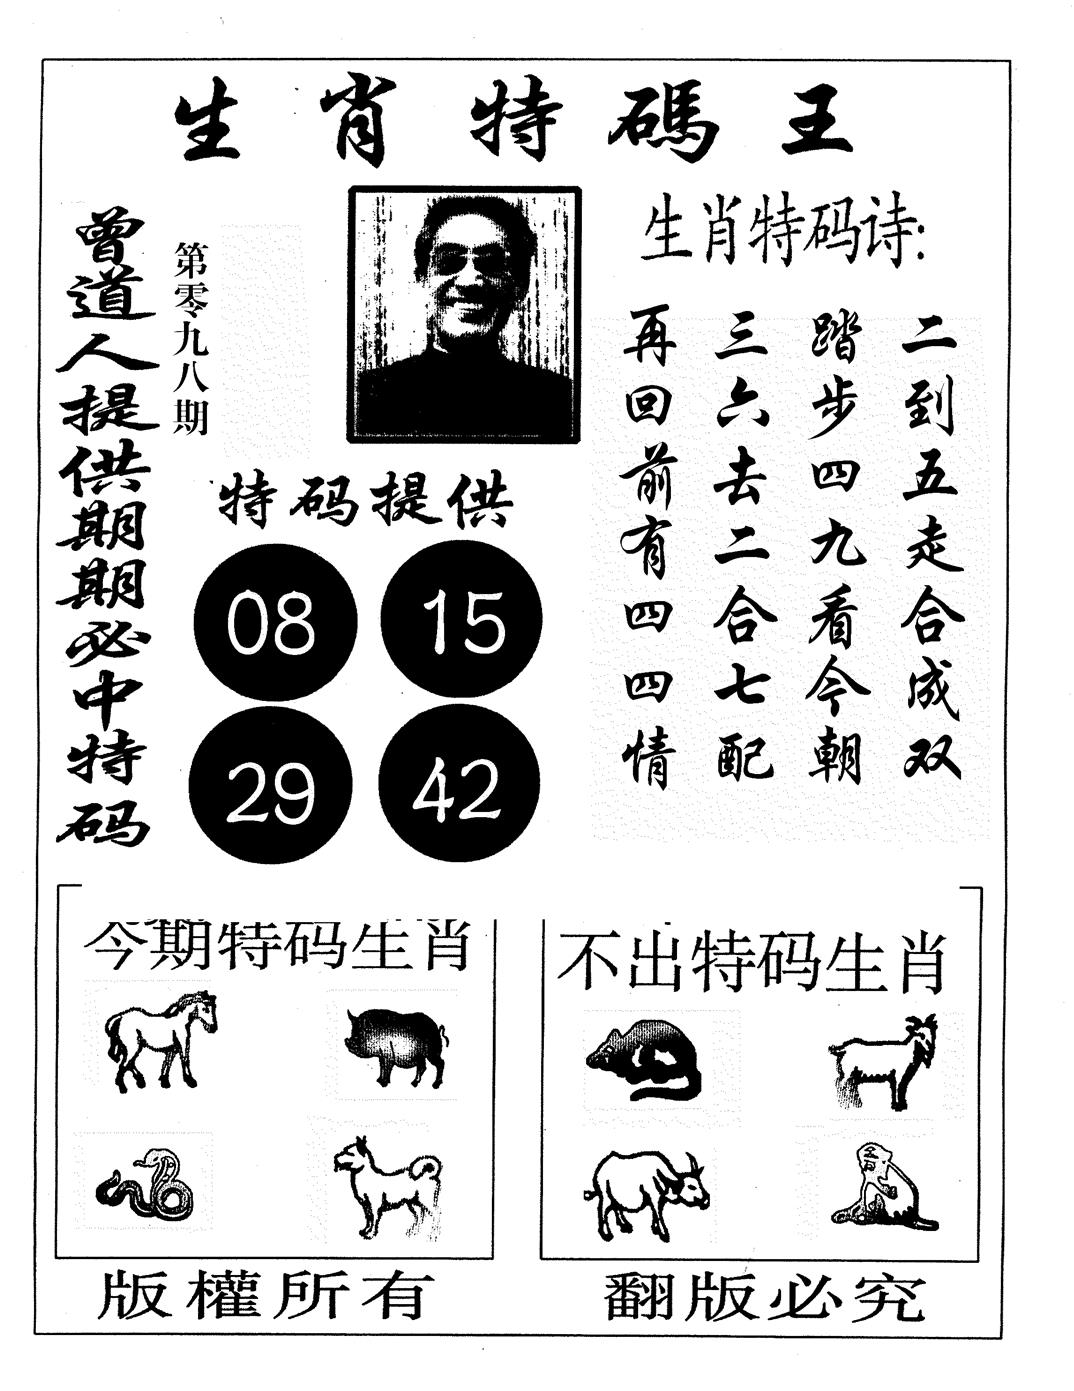 生肖特碼王
曾道人提供期期必中特码
第零九八期
特码提供
08 15
29 42
生肖特码诗:
二到五走合成双
踏步四九看今朝
三六去二合七配
再回前有四四情
今期特码生肖
不出特码生肖
版權所有
翻版必究